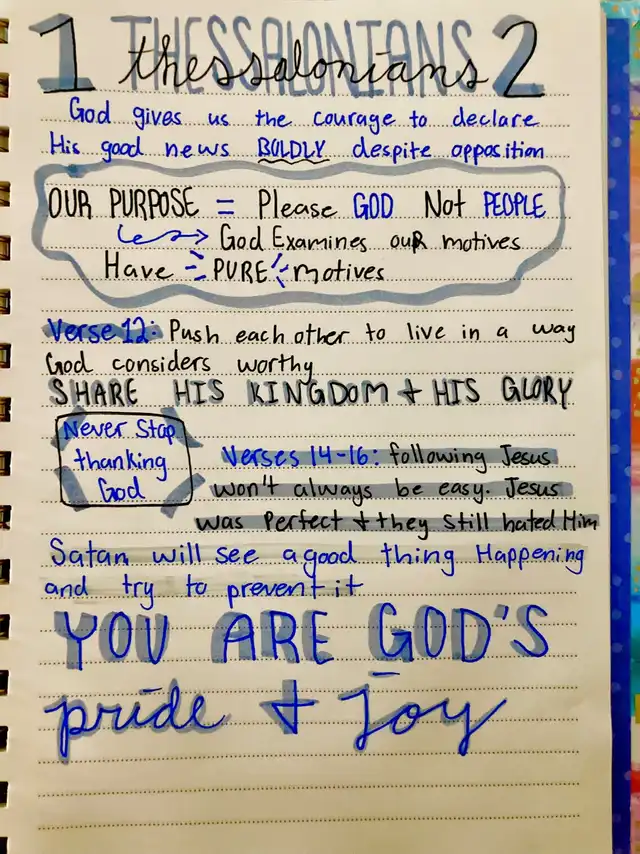 1 THESSALONIANS 2
thessalonians
God gives us the courage to declare
His good news BOLDLY despite opposition
OUR PURPOSE = Please GOD Not PEOPLE
God Examines our motives
Have PURE motives
Verse 12: Push each other to live in a way
God considers worthy
SHARE HIS KINGDOM + HIS GLORY
Never Stop
thanking
God
Verses 14-16: following Jesus
won't always be easy. Jesus
was Perfect + they still hated Him
Satan will see a good thing Happening
and try to prevent it
YOU ARE GOD'S
pride + Joy